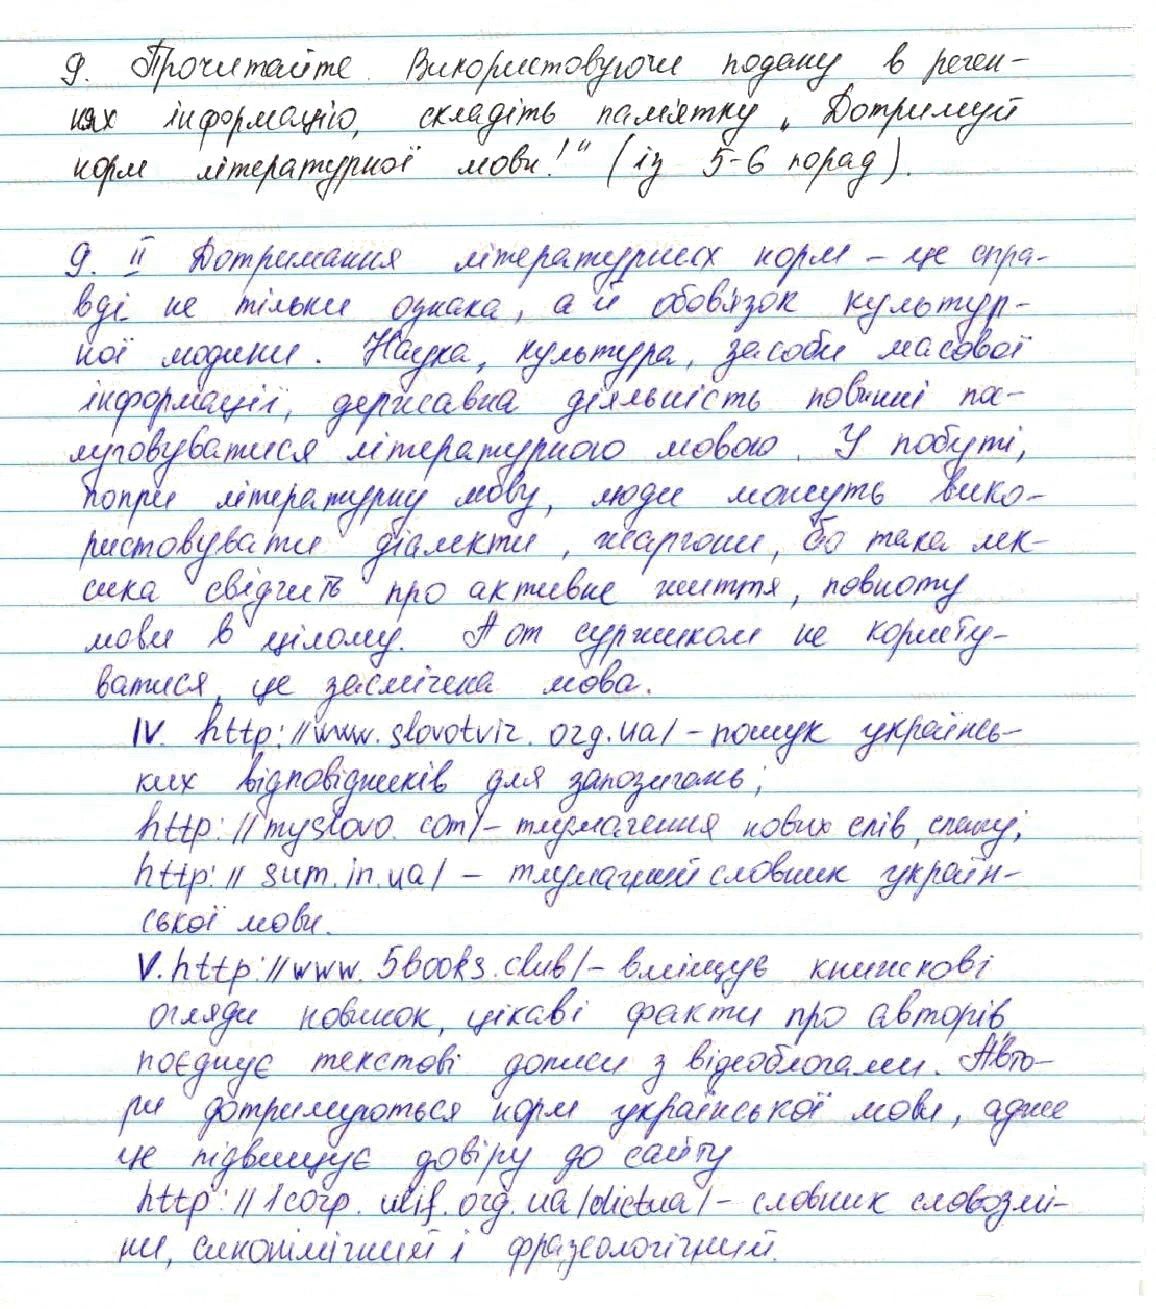 9. Прочитайте. Використовуючи подану в речен-
нях інформацію, складіть пам'ятку „Дотримуй
норм літературної мови!" (із 5-6 порад).
9. II Дотримання літературних норм – це спра-
вді не тільки ознака, а й обов'язок культур-
ної людини. Наука, культура, засоби масової
інформації, державна діяльність повинні пос-
луговуватися літературною мовою. У побуті,
попри літературну мову, люди можуть вико-
ристовувати діалекти, жаргони, бо така лек-
сика свідчить про активне життя, повноту
мови в цілому. А от суржиком не користу-
ватися, це засмічена мова.
IV. http://www.slovotvir.org.ua/ – пошук українсь-
ких відповідників для запозичень;
http://myslovo.com/ – тлумачення нових слів, сленгу;
http://sum.in.ua/ – тлумачний словник україн-
ської мови.
V. http://www.5books.club/ – вміщує книжкові
огляди новинок, цікаві факти про авторів,
поєднує текстові дописи з відеоблогами. Авто-
ри дотримуються норм української мови, адже
це підвищує довіру до сайту
http://lcorp.ulif.org.ua/dictua/ – словник словозмі-
ни, синонімічний і фразеологічний.